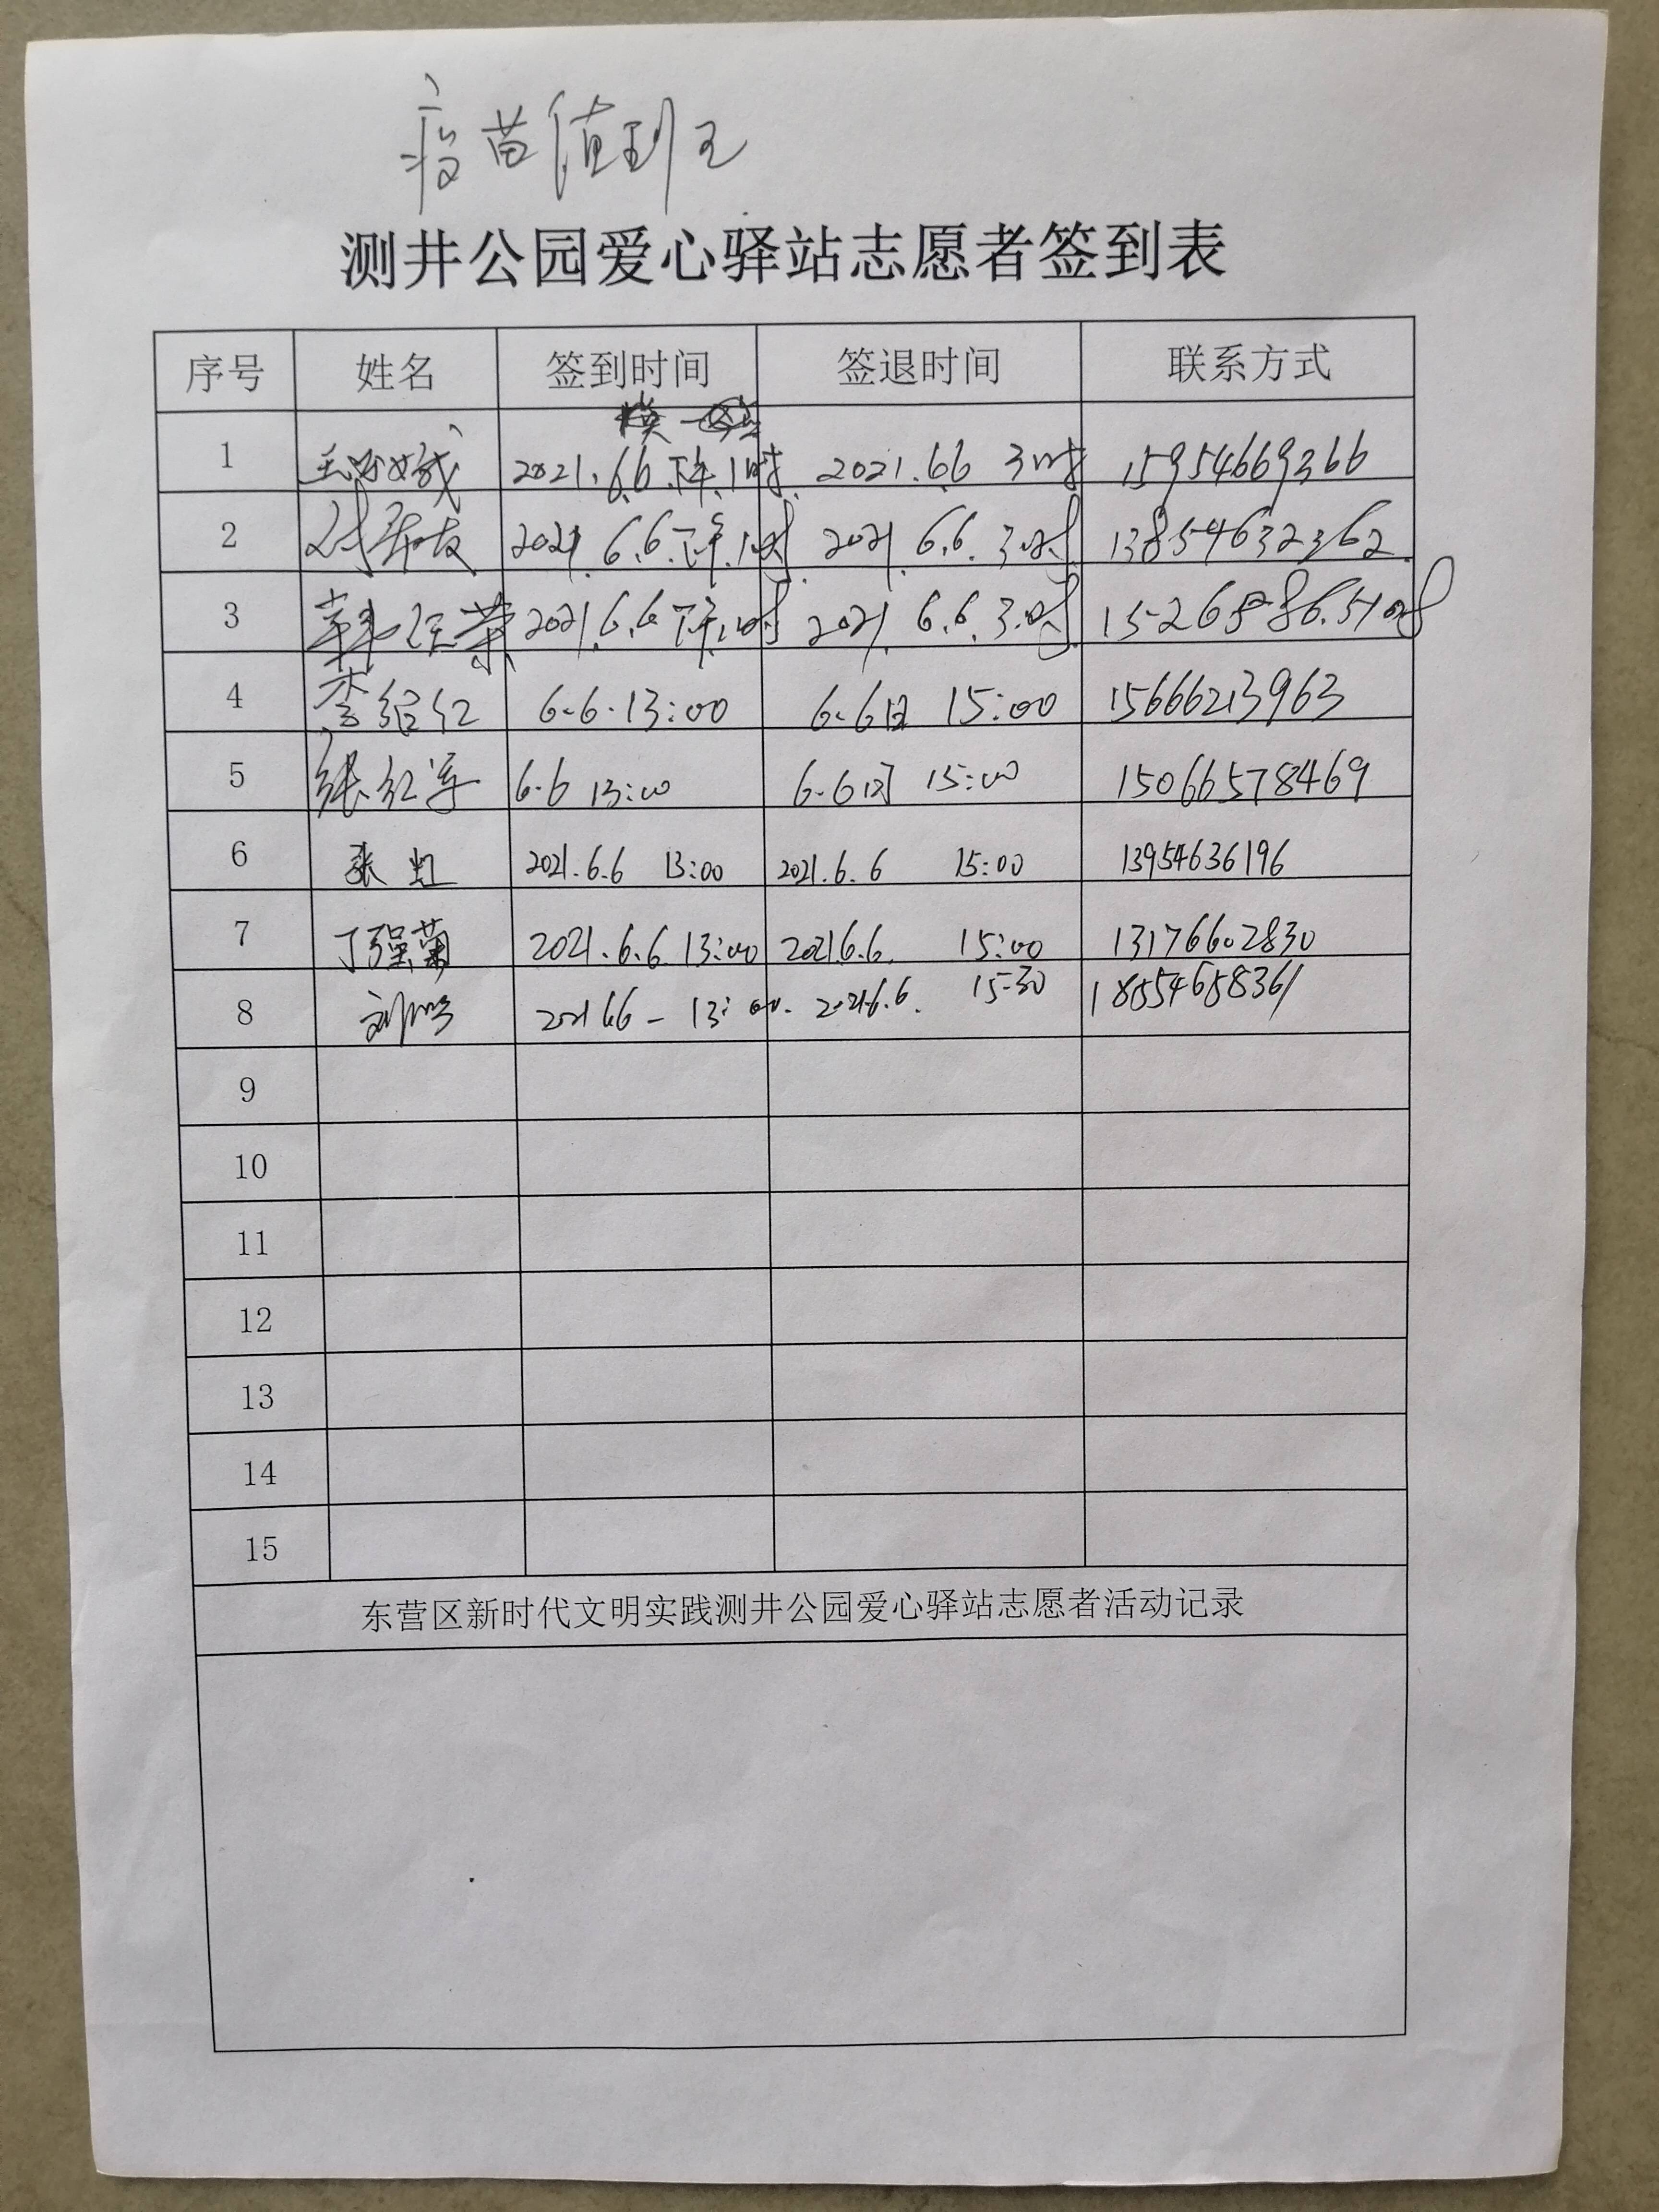 疫苗值班
测井公园爱心驿站志愿者签到表
序号 姓名 签到时间 签退时间 联系方式
1 2021.6.6 下午1时 2021.6.6 3时 15954669366
2 2021.6.6.下午.1时 2021.6.6.3时 13854632362
3 韩任荣 2021.6.6 下午.1时 2021.6.6.3时
4 李绍红 6.6.13:00 6.6日 15:00 15666213963
5 张红 6.6 13:00 6.6日 15:00 15066578469
6 张虹 2021.6.6 13:00 2021.6.6 15:00 13954636196
7 丁强菊 2021.6.6 13:00 2021.6.6. 15:00 13176602830
8 2021.6.6 - 13:00. 2021.6.6. 15:30
9
10
11
12
13
14
15
东营区新时代文明实践测井公园爱心驿站志愿者活动记录